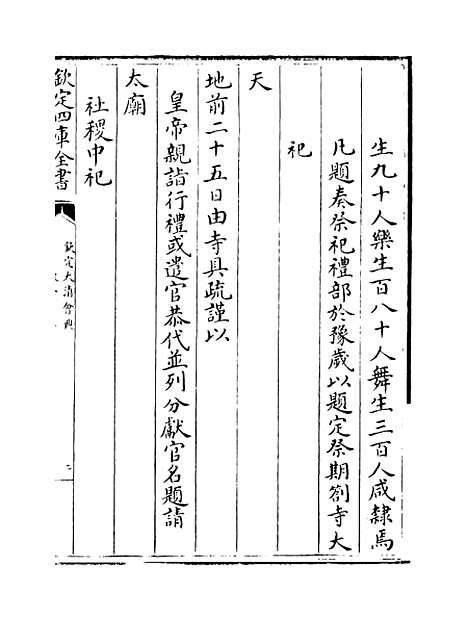 生九十人樂生百八十人舞生三百人咸隸焉
凡題奏祭祀禮部於豫歲以題定祭期劄寺大
祀
天
地前二十五日由寺具疏謹以
皇帝親詣行禮或遣官恭代並列分獻官名題請
太廟
社稷中祀
欽定四庫全書
欽定大清會典